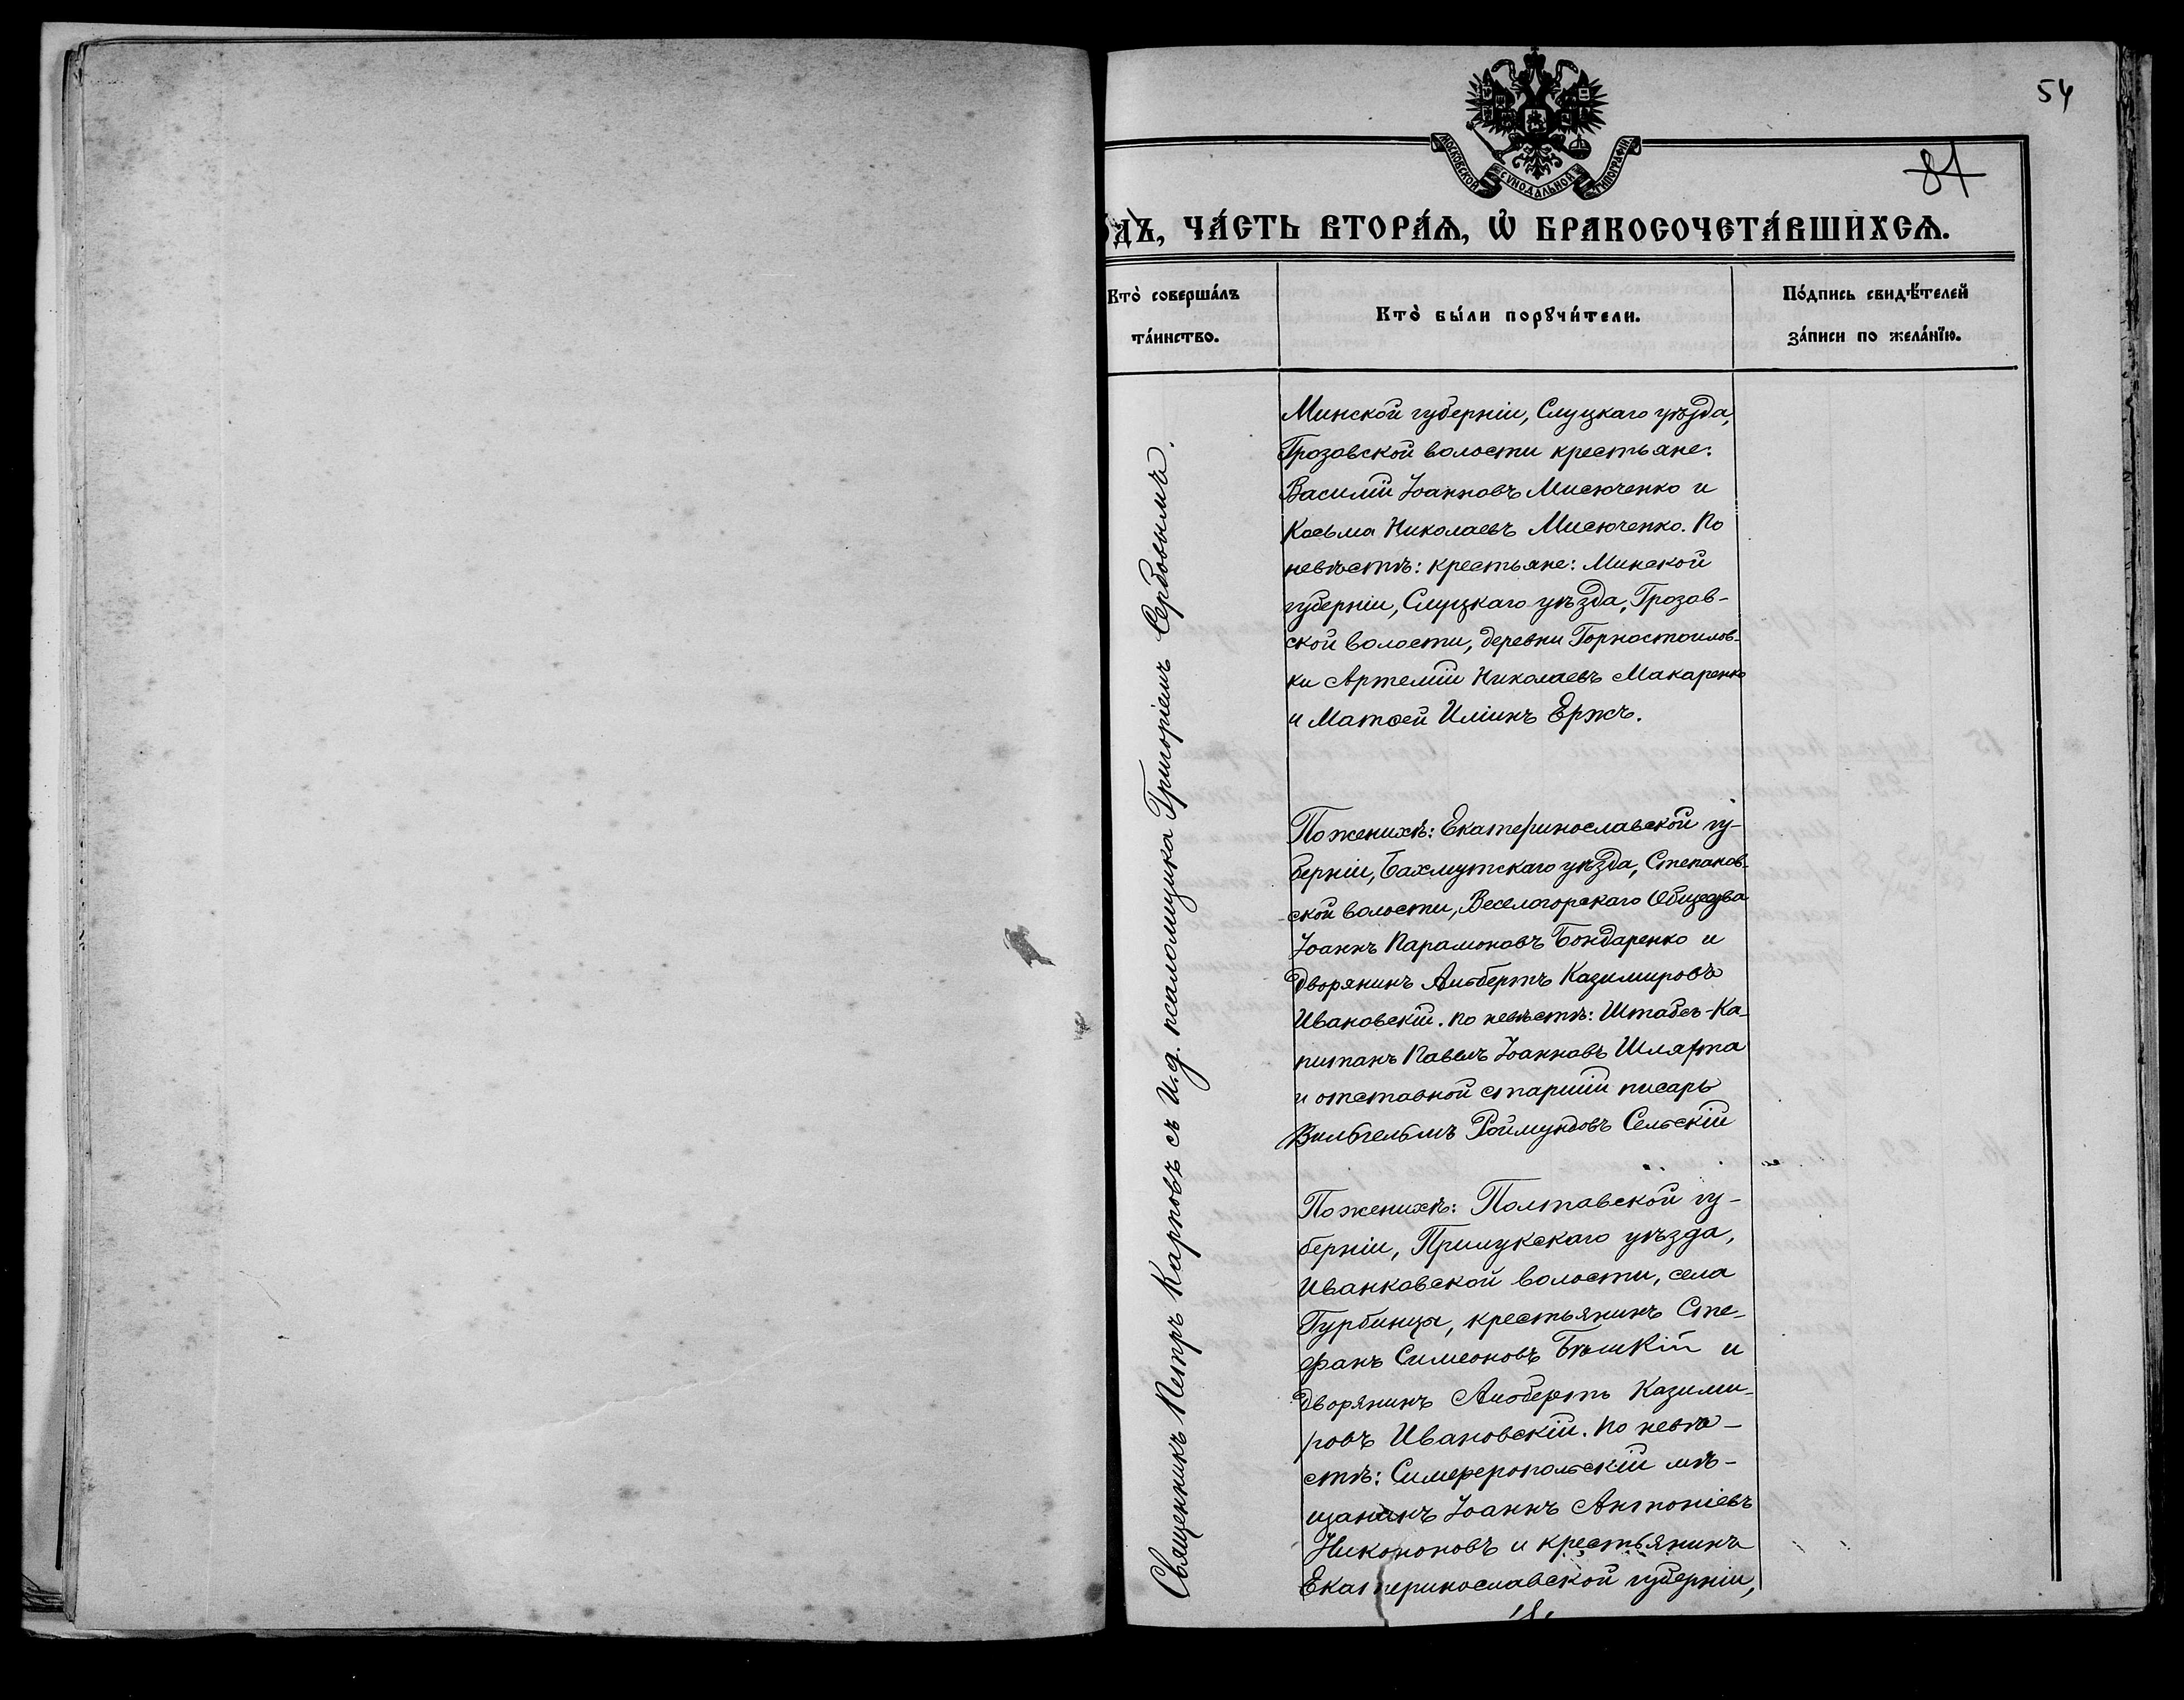 54
81
МОСКОВСКОЙ СѴНОДАЛЬНОЙ ТИПОГРАФІИ
ДЪ, ЧА́СТЬ ВТОРА́Ѧ, Ѽ БРАКОСОЧЕТА́ВШИХСѦ.
Кто̀ соверша́лъ
та́инство.
Кто̀ бы́ли порꙋчи́тели.
По́дпись свидѣ́телей
за́писи по жела́нїю.
Священникъ Петръ Карповъ съ И.д. псаломщика Григоріемъ Сербовымъ.
Минской губерніи, Слуцкаго уѣзда,
Грозовской волости крестьяне:
Василій Іоанновъ Мисюченко и
Косьма Николаевъ Мисюченко. По
невѣстѣ: крестьяне: Минской
губерніи, Слуцкаго уѣзда, Грозов-
ской волости, деревни Горностоилов-
ки Артемій Николаевъ Макаренко
и Матѳей Иліинъ Ержъ.
По женихѣ: Екатеринославской гу-
берніи, Бахмутскаго уѣзда, Степанов-
ской волости, Веселогорскаго Общества
Іоаннъ Парамоновъ Бондаренко и
дворянинъ Альбертъ Казимировъ
Ивановскій. По невѣстѣ: Штабсъ-Ка-
питанъ Павелъ Іоанновъ Шляхта
и отставной старшій писарь
Вильгельмъ Роймундовъ Сельскій
По женихѣ: Полтавской гу-
берніи, Прилукскаго уѣзда,
Иванковской волости, села
Гурбинцы, крестьянинъ Сте-
фанъ Симеоновъ Бѣшкій и
дворянинъ Альбертъ Казими-
ровъ Ивановскій. По невѣ-
стѣ: Симферопольскій мѣ-
щанинъ Іоаннъ Антоніевъ
Никононовъ и крестьянинъ
Екатеринославской губерніи,